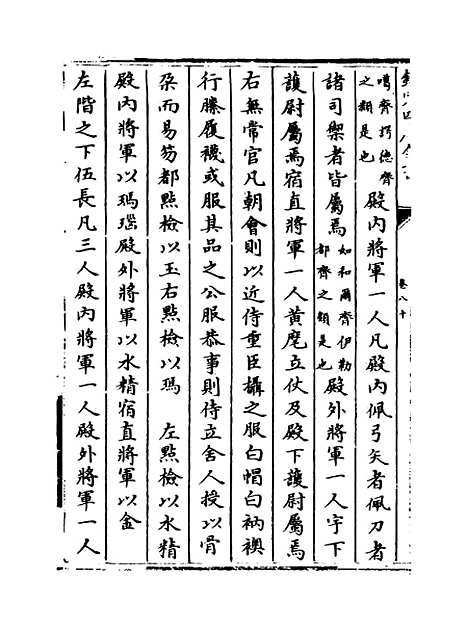 噶齊諤德齊
之類是也
殿內將軍一人凡殿內佩弓矢者佩刀者
諸司禦者皆屬焉
如和爾齊伊勒
都齊之類是也
殿外將軍一人宇下
護尉屬焉宿直將軍一人黄麾立仗及殿下護尉屬焉
右無常官凡朝會則以近侍重臣攝之服白帽白衲襖
行縢履襪或服其品之公服恭事則侍立舍人授以骨
朶而易笏都點檢以玉右點檢以瑪 左點檢以水精
殿內將軍以瑪瑙殿外將軍以水精宿直將軍以金
左階之下伍長凡三人殿內將軍一人殿外將軍一人
卷八十